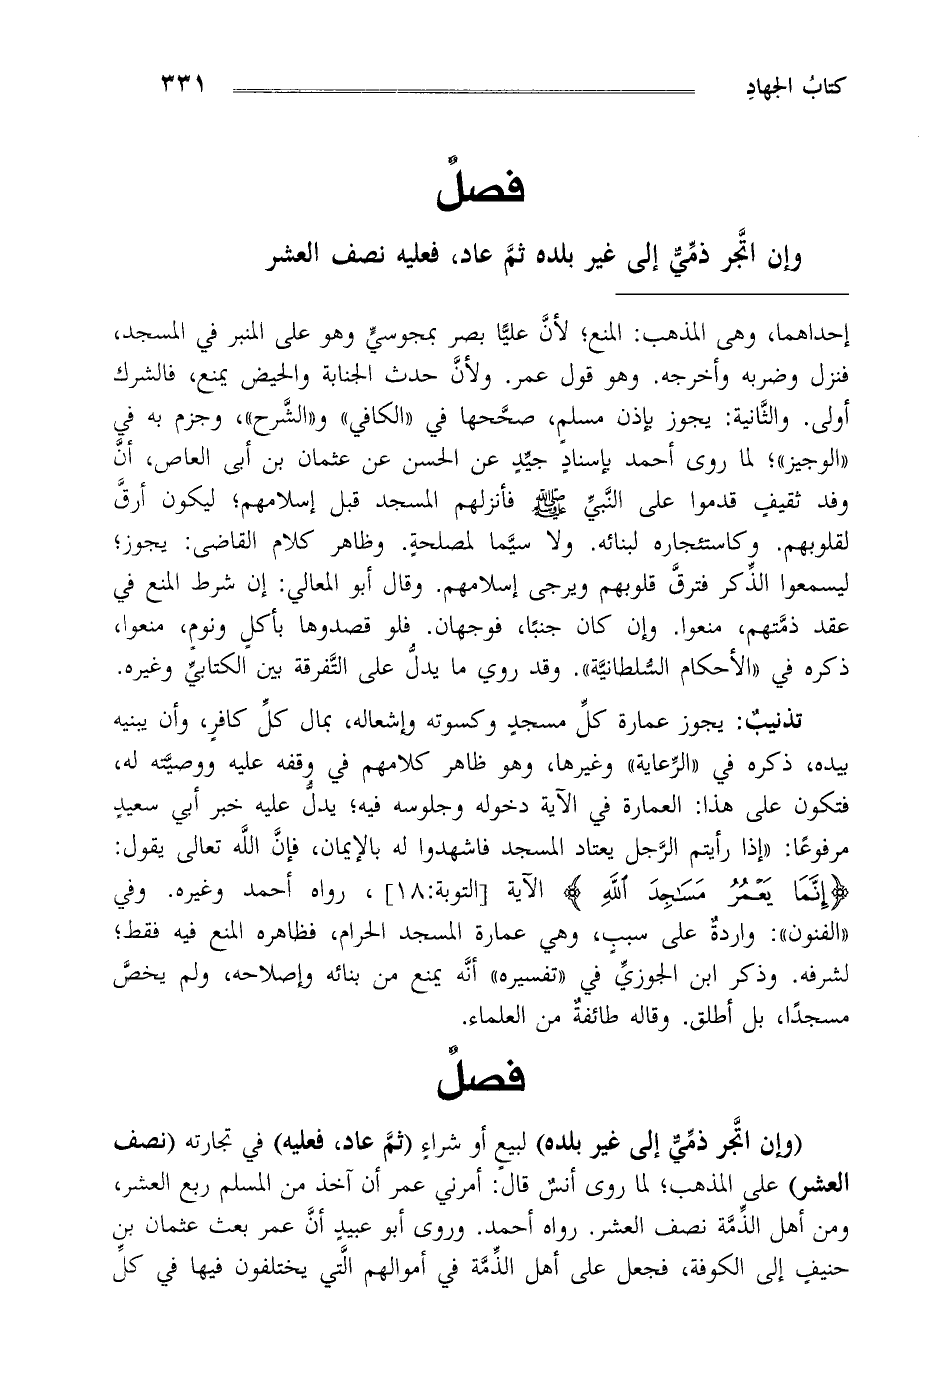 كتابُ الجهادِ ٣٣١
فصلٌ
وإن اتَّجر ذمِّيٌّ إلى غير بلده ثمَّ عاد، فعليه نصف العشر
إحداهما، وهى المذهب: المنع؛ لأنَّ عليًّا بصر بمجوسيٍّ وهو على المنبر في المسجد،
فنزل وضربه وأخرجه. وهو قول عمر. ولأنَّ حدث الجنابة والحيض يمنع، فالشرك
أولى. والثَّانية: يجوز بإذن مسلمٍ، صحَّحها في «الكافي» و«الشَّرح»، وجزم به في
«الوجيز»؛ لما روى أحمد بإسنادٍ جيِّدٍ عن الحسن عن عثمان بن أبى العاص، أنَّ
وفد ثقيفٍ قدموا على النَّبيِّ ﷺ فأنزلهم المسجد قبل إسلامهم؛ ليكون أرقَّ
لقلوبهم. وكاستئجاره لبنائه. ولا سيَّما لمصلحةٍ. وظاهر كلام القاضى: يجوز؛
ليسمعوا الذِّكر فترقَّ قلوبهم ويرجى إسلامهم. وقال أبو المعالي: إن شرط المنع في
عقد ذمَّتهم، منعوا. وإن كان جنبًا، فوجهان. فلو قصدوها بأكلٍ ونومٍ، منعوا،
ذكره في «الأحكام السُّلطانيَّة». وقد روي ما يدلُّ على التَّفرقة بين الكتابيِّ وغيره.
تذنيبٌ: يجوز عمارة كلِّ مسجدٍ وكسوته وإشعاله، بمال كلِّ كافرٍ، وأن يبنيه
بيده، ذكره في «الرِّعاية» وغيرها، وهو ظاهر كلامهم في وقفه عليه ووصيَّته له،
فتكون على هذا: العمارة في الآية دخوله وجلوسه فيه؛ يدلُّ عليه خبر أبي سعيدٍ
مرفوعًا: «إذا رأيتم الرَّجل يعتاد المسجد فاشهدوا له بالإيمان، فإنَّ اللَّه تعالى يقول:
﴿إِنَّمَا يَعْمُرُ مَسَٰجِدَ ٱللَّهِ﴾ الآية [التوبة:١٨] ، رواه أحمد وغيره. وفي
«الفنون»: واردةٌ على سببٍ، وهي عمارة المسجد الحرام، فظاهره المنع فيه فقط؛
لشرفه. وذكر ابن الجوزيِّ في «تفسيره» أنَّه يمنع من بنائه وإصلاحه، ولم يخصَّ
مسجدًا، بل أطلق. وقاله طائفةٌ من العلماء.
فصلٌ
(وإن اتَّجر ذمِّيٌّ إلى غير بلده) لبيعٍ أو شراءٍ (ثمَّ عاد، فعليه) في تجارته (نصف
العشر) على المذهب؛ لما روى أنسٌ قال: أمرني عمر أن آخذ من المسلم ربع العشر،
ومن أهل الذِّمَّة نصف العشر. رواه أحمد. وروى أبو عبيدٍ أنَّ عمر بعث عثمان بن
حنيفٍ إلى الكوفة، فجعل على أهل الذِّمَّة في أموالهم الَّتي يختلفون فيها في كلِّ